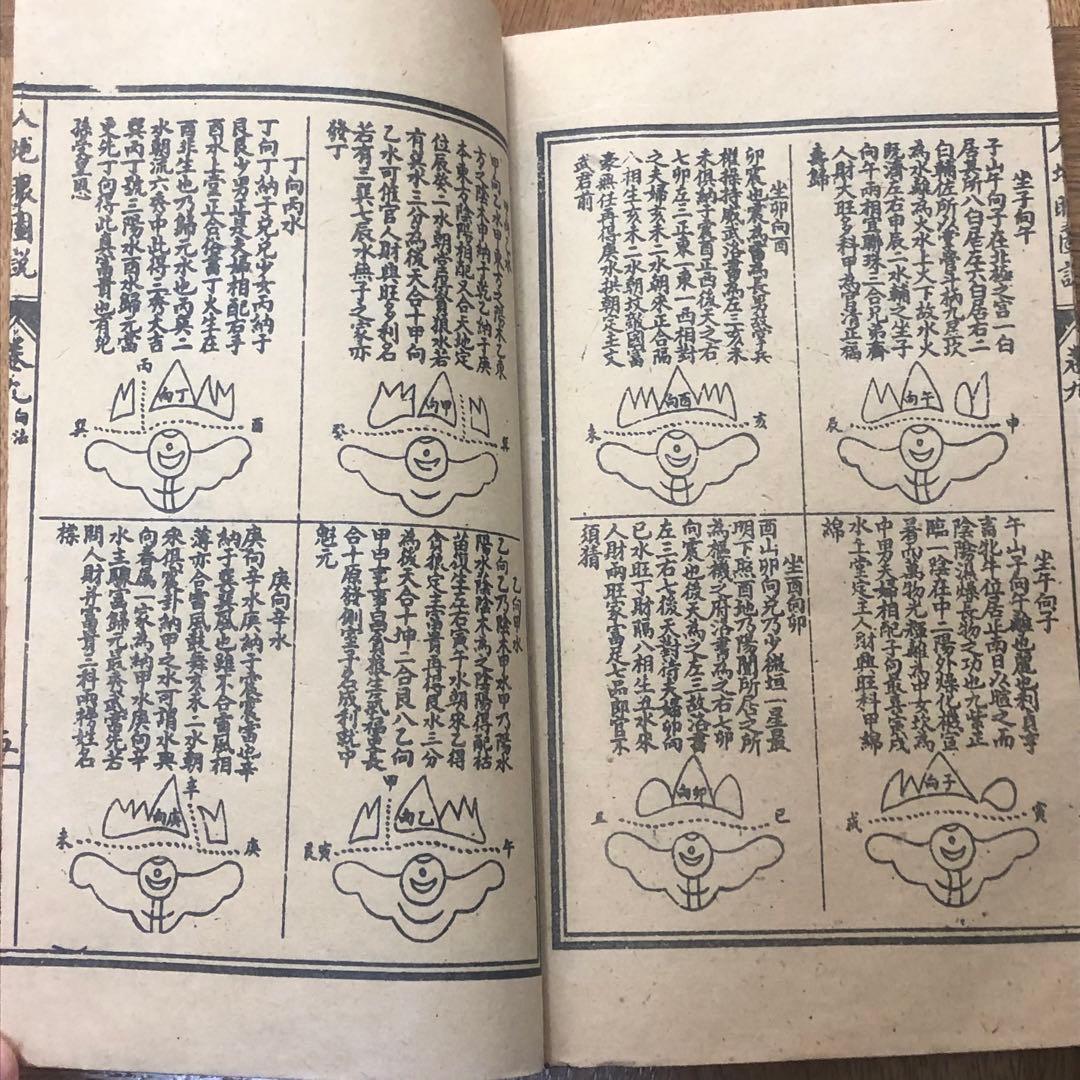 坐子向午
子山午向子在北極之宮一白
居艮所八白居左六白居右二
白輔佐所必當晉斗柄九星坎
為水離為火水上火下故水火
既濟左右申辰二水輔之坐子
向午兩相宜聯珠三合兄弟齊
人財大旺多科甲為官清正福
壽歸
午向
辰
申
坐卯向酉
卯震也震為雷為長男故掌兵
權操持威武洛書為左二亥未
未俱納于震酉正西後天之右
七卯左三正東一東一西相對
之夫婦亥未二水朝來正合隔
八相生亥未二水朝坟敵國富
再得庚水拱朝定主文
武君前
酉向
未
亥
坐午向子
午山子向午離也麗也利貞亨
畜牝牛位居正南日以暄之而
陰陰濕燥長物之功也九紫正
臨一陰在中二陽外燥化機宣
著而萬物光輝離為中女坎為
中男夫婦相配子向最真寅戌
水上堂定主人財興旺科甲綿
綿
子向
戌
寅
坐酉向卯
酉山卯向兌乃少微垣一星最
明下照酉地乃陽闌所居之所
為樞機之府洛書為之右七卯
向震也後天為之左三故洛書
左三右七後天對待夫婦卯向
巳水旺丁財隔八相生丑水來
人財兩旺家富足七品郎官不
須猜
卯向
丑
巳
甲向乙水
甲向乙水甲東方之陽木乙東
方之陰木甲納于乾乙納于庚
本東方陰陽相配又合天地定
位辰癸二水朝堂得貪狼水若
有巽水三分為後天合十甲向
乙水可催官人財興旺多利名
若有三巽七辰水無子之家亦
發丁
甲向
癸
巽
丁向丙水
丁向丁納于兌兌少女丙納于
艮艮少男正長夫婦相配右手
酉水上堂正合徐富丁火生在
酉非生也乃歸元水也丙巽二
水朝流六秀中此得三秀大吉
巽丙丁號三陽水酉水歸元富
來先丁向得此真富貴也有兒
孫受皇恩
丁向
丙
巽
酉
乙向甲水
乙向乙乃陰木甲水甲乃陽木
陽水陰陰木為之陰陽得配枯
苗復生左右寅午水朝來乙得
貪狼定主富貴再得艮水三分
為後天合十坤二合艮八乙向
甲由事事昌貪狼生武福更長
合十原發側室子名成利就甲
魁元
乙向
甲
艮寅
午
庚向辛水
庚向辛水庚納于震震雷也辛
納于巽巽風也雖不合雷風相
薄亦合雷風鼓舞亥未二水朝
來俱震卦納甲之水可謂水與
向者屬一家為納甲水庚向辛
水主驟富歸元最秀武堂先若
問人財并富貴三科兩榜姓名
標
庚向
辛
未
庚
卷九
向法
五